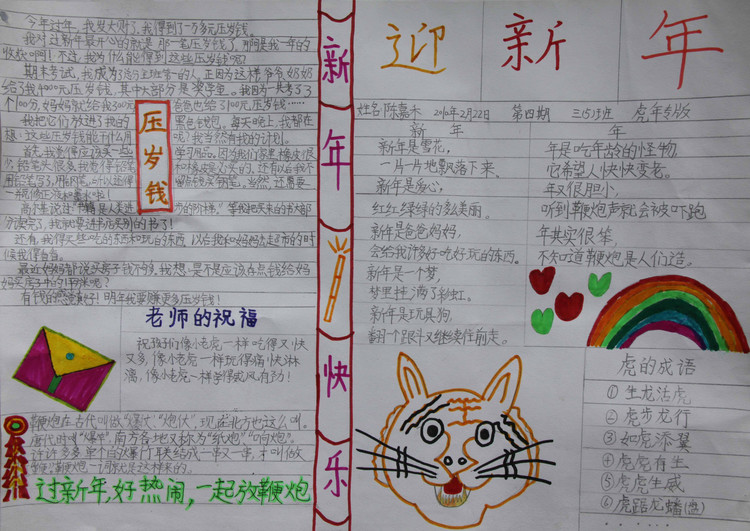 迎新年
姓名:陈嘉禾 2010年2月22日 第四期 三1515班 虎年专版
新年快乐
压岁钱
今年过年,我发大财了,我得到了一万多元压岁钱。
我对过新年最开心的就是那一笔压岁钱了,那可是我一年的
收款啊!不过,我为什么能得到这些压岁钱呢?
期末考试,我成为了这个主班第一的人,正因为这样爷爷奶奶
给了我400元压岁钱,其中大部分是
个100分,妈妈就给我300元 爸爸也给了100元压岁钱……
我把它们放进了我的 里,每天晚上,我都在
想:这些压岁钱能干什么用 呢?我当然有我的计划。
首先,我觉得应该买一些 学习用品,因为我们家里
还有,我得买些吃的东西和玩的东西,以后我和妈妈去超市的时
候我得自备。
最近妈妈都说买房子钱不够,我想,是不是应该存点钱给妈
妈买房子
有钱的感觉真好!明年我要赚更多压岁钱!
老师的祝福
祝孩子们像小老虎一样吃得又快
又多,像小老虎一样玩得痛快淋
漓,像小老虎一样学得威风有劲!
鞭炮在古代叫做“爆仗”“炮仗”,现在北方也这么叫。
唐代时或“爆竿”,南方各地又称为“纸炮”“响炮”。
许许多多单个的爆竹联结成一串又一串,才叫做
鞭炮,鞭炮一词就是这样来的。
过新年,好热闹,一起放鞭炮
新年
新年是雪花,
一片一片地飘落下来。
新年是爱心,
红红绿绿的多么美丽。
新年是爸爸妈妈,
会给我许多好吃好玩的东西。
新年是一个梦,
梦里挂满了彩虹。
新年是玩具狗,
翻个跟斗又继续往前走。
年
年是吃年龄的怪物,
它希望人快快变老。
年又很胆小,
听到鞭炮声就会被吓跑
年其实很笨,
不知道鞭炮是人们造。
虎的成语
① 生龙活虎
② 虎步龙行
③ 如虎添翼
④ 虎虎有生
⑤ 虎虎生威
⑥ 虎踞龙蟠(盘)
……